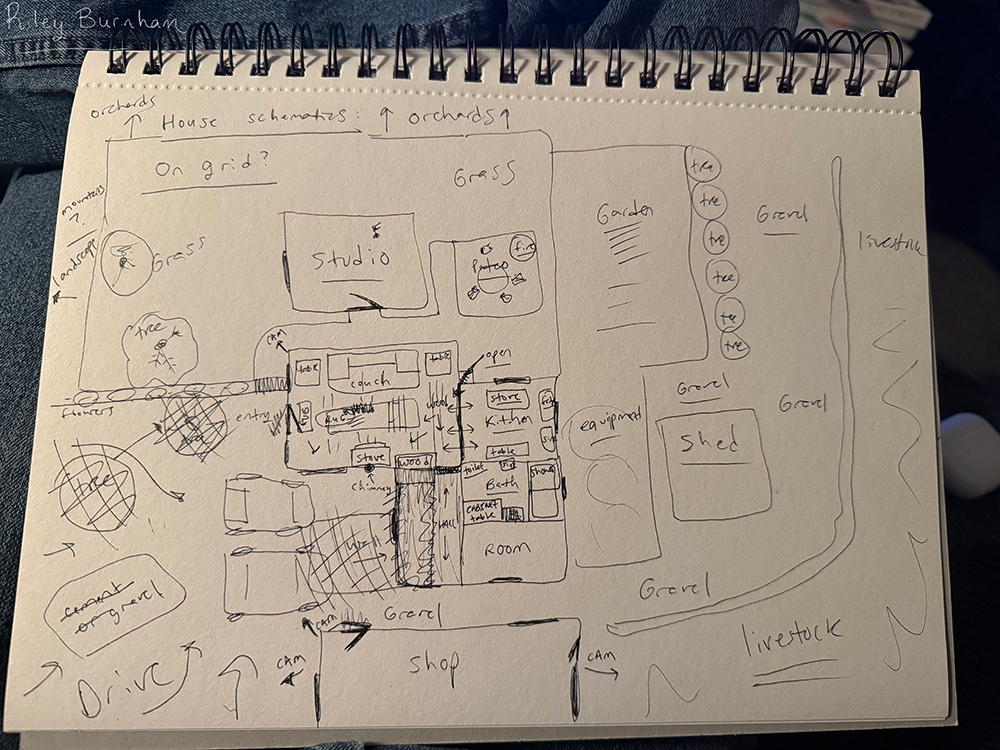 Riley Burnham
orchards
House schematics: orchards
On grid?
Grass
mountains
?
landscape
Grass
Studio
fire
Patio
Garden
tree
tree
tree
tree
tree
tree
Gravel
livestock
tree
CAM
table
couch
table
open
flowers
entry
rug
wood
store
Kitchen
sink
table
equipment
Gravel
Gravel
Shed
tree
stove
wood
chimney
toilet
sink
Bath
CABINET
table
HALL
ROOM
cement
or gravel
Gravel
Gravel
CAM
CAM
Shop
CAM
livestock
Drive